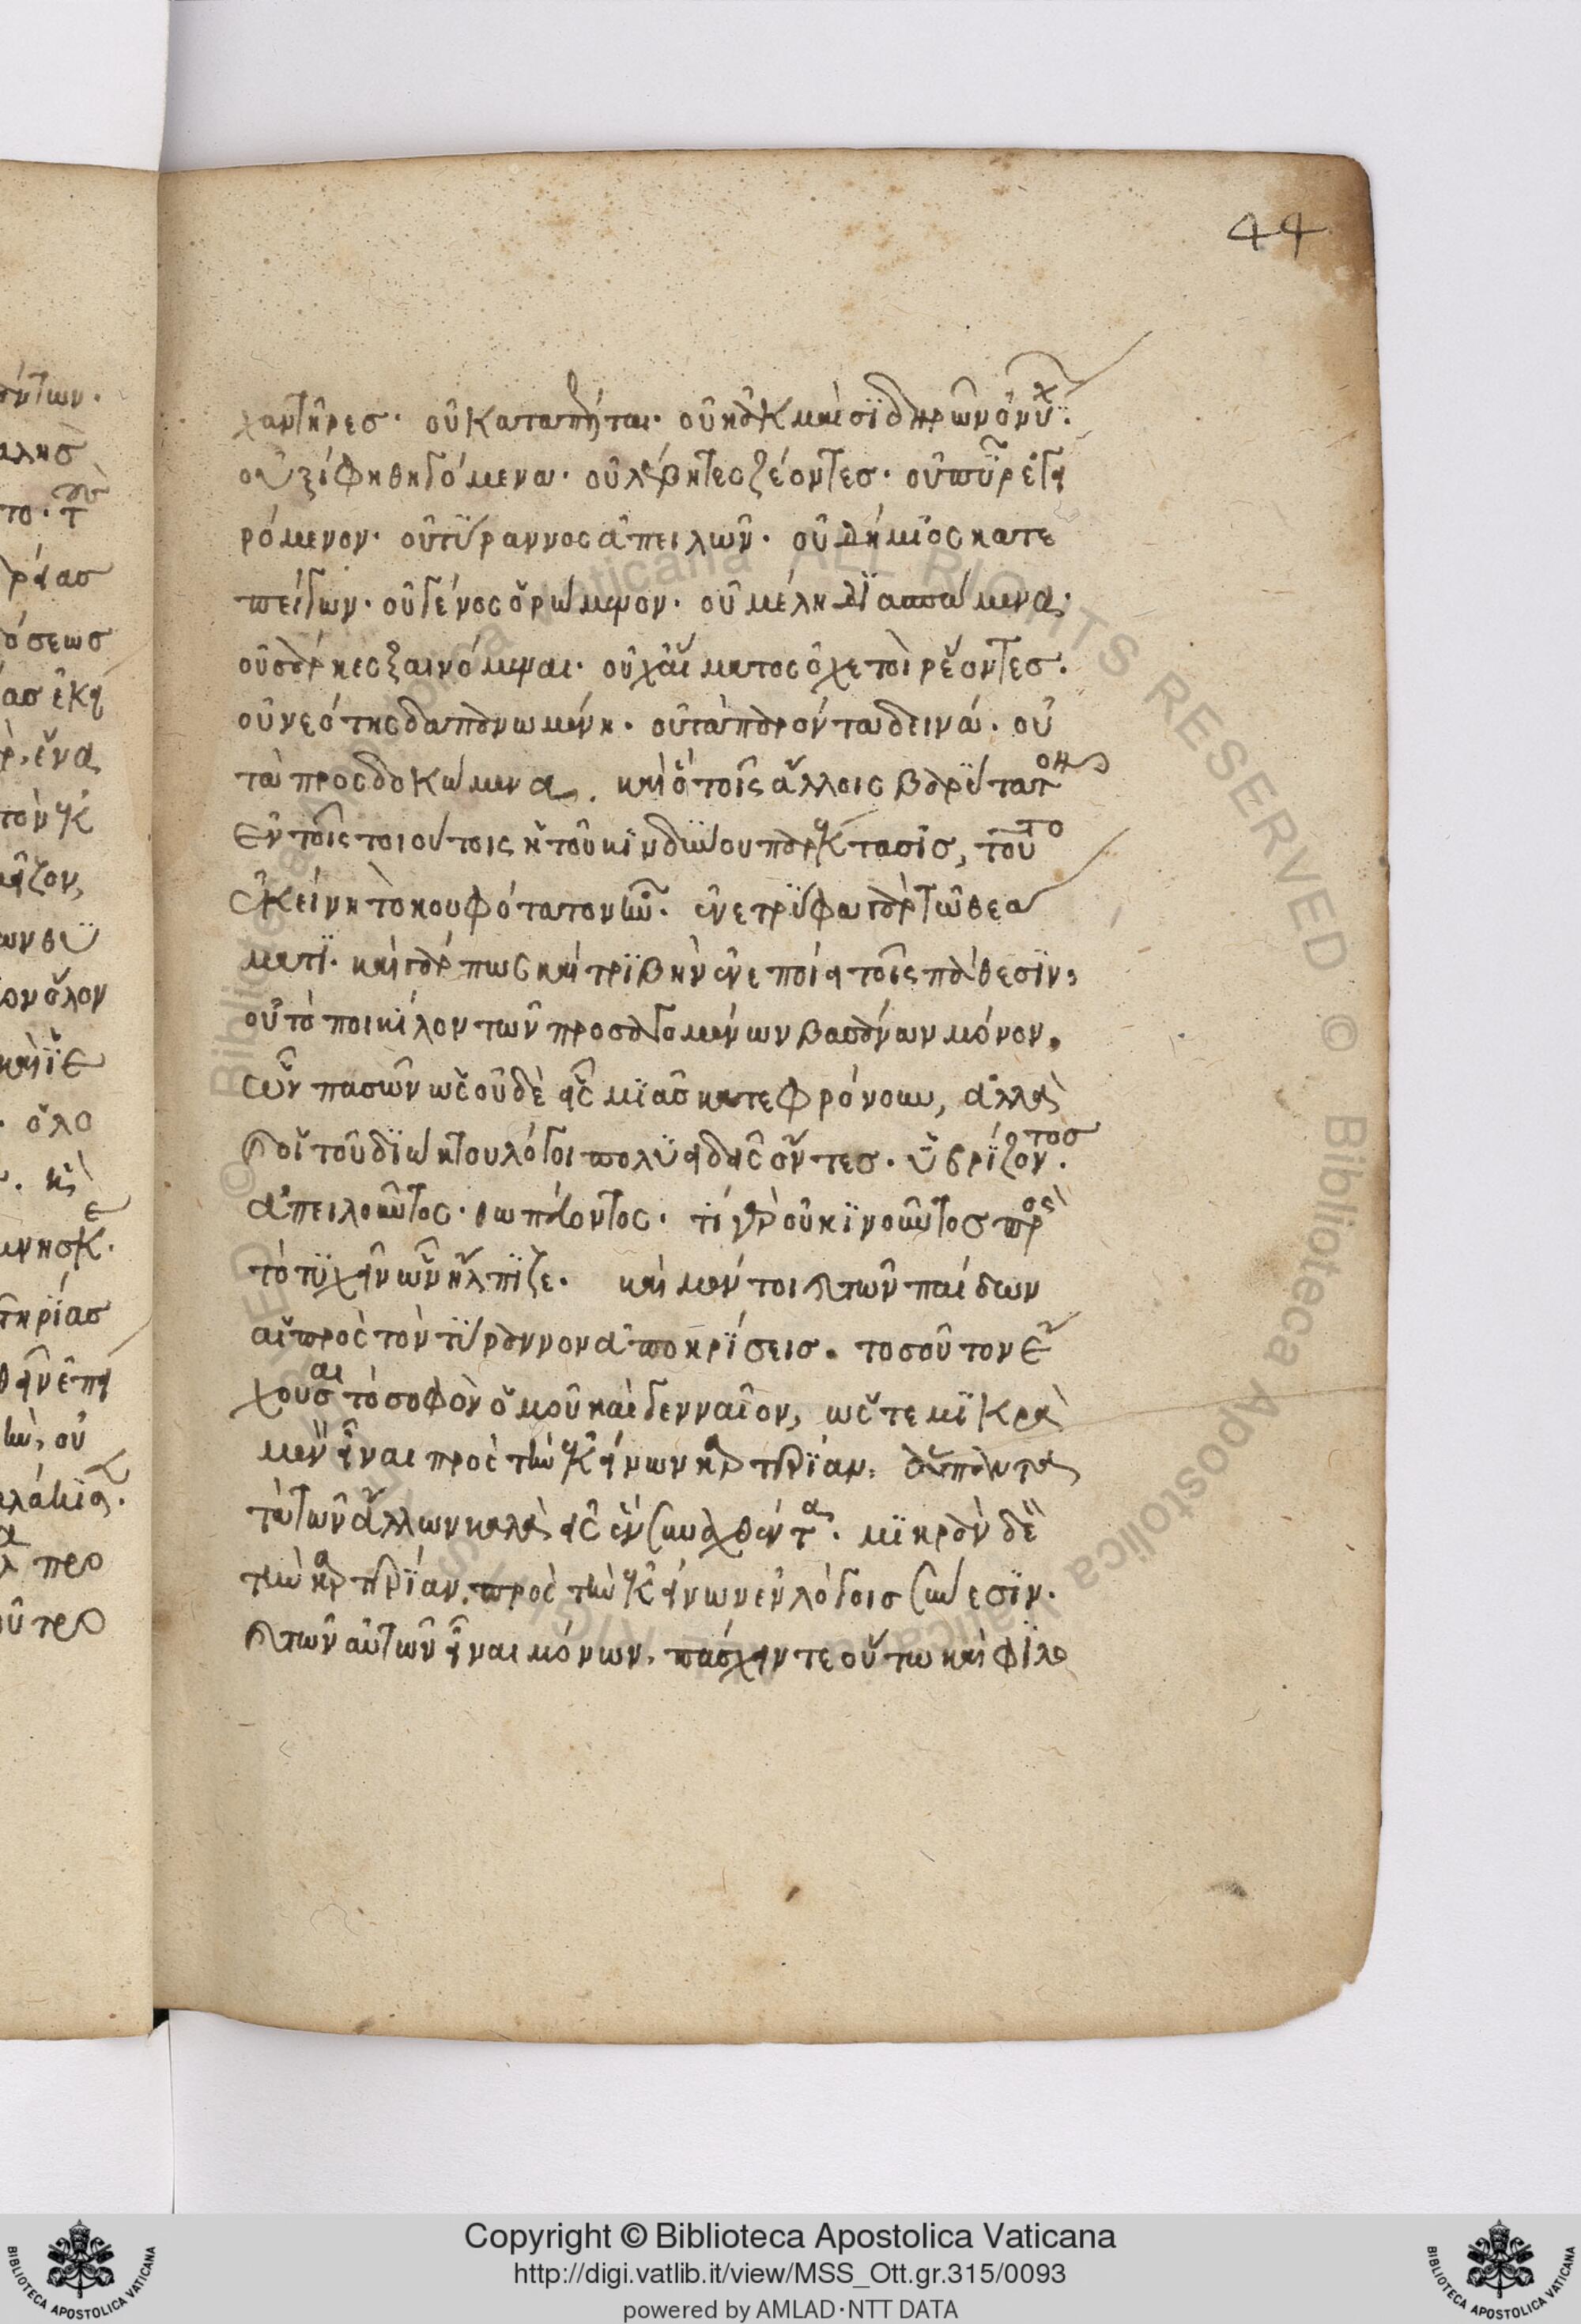 44
χαντῆρες. οὐ καταπέλται. οὐκ ἀκμαὶ σιδηρῶν ὀνύχ.
οὐ ξίφη θηγόμενα. οὐ λέβητες ζέοντες. οὐ πῦρ ἐγει
ρόμενον. οὐ τύραννος ἀπειλῶν. οὐ δῆμος κατε
πείγων. οὐ γένος ὁρώμενον. οὐ μέλη διασπώμενα.
οὐ σάρκες ξαινόμεναι. οὐχ αἵματος ὀχετοὶ ῥέοντες.
οὐ νεότης δαπανωμένη. οὐ τὰ παρόντα δεινά. οὐ
τὰ προσδοκώμενα. καὶ ὃ τοῖς ἄλλοις βαρύτατον
ἐν τοῖς τοιούτοις ἡ τοῦ κινδύνου παρέκτασις, τοῦτο
ἐκείνη τὸ κουφότατον ἦν. ἐνετρύφα γὰρ τῷ θεά
ματι. καί πως καὶ τριβὴν ἐνεποίει τοῖς πάθεσιν,
οὐ τὸ ποικίλον τῶν προσαγομένων βασάνων μόνον.
ὧν πασῶν ὡς οὐδὲ εἷς μιᾶς κατεφρόνουν, ἀλλὰ
καὶ οἱ τοῦ διώκτου λόγοι πολυειδεῖς ὄντες. ὑβρίζοντος.
ἀπειλοῦντος. θωπεύοντος. τί γὰρ οὐ κινοῦντος πρὸς
τὸ τυχεῖν ὧν ἤλπιζε. καὶ μέντοι καὶ τῶν παίδων
αἱ πρὸς τὸν τύραννον ἀποκρίσεις. τοσοῦτον ἔ
χουσαι τὸ σοφὸν ὁμοῦ καὶ γενναῖον, ὥστε μικρὰ
μὲν εἶναι πρὸς τὴν ἐκείνων καρτερίαν. ἅπαντα
τὰ τῶν ἄλλων καλὰ εἰς ἓν συναχθέντα. μικρὰν δὲ
τὴν καρτερίαν, πρὸς τὴν ἐκείνων ἐν λόγοις σύνεσιν.
καὶ τῶν αὐτῶν εἶναι μόνων, πάσχειν τε οὕτω καὶ φιλο
Copyright © Biblioteca Apostolica Vaticana
http://digi.vatlib.it/view/MSS_Ott.gr.315/0093
powered by AMLAD·NTT DATA